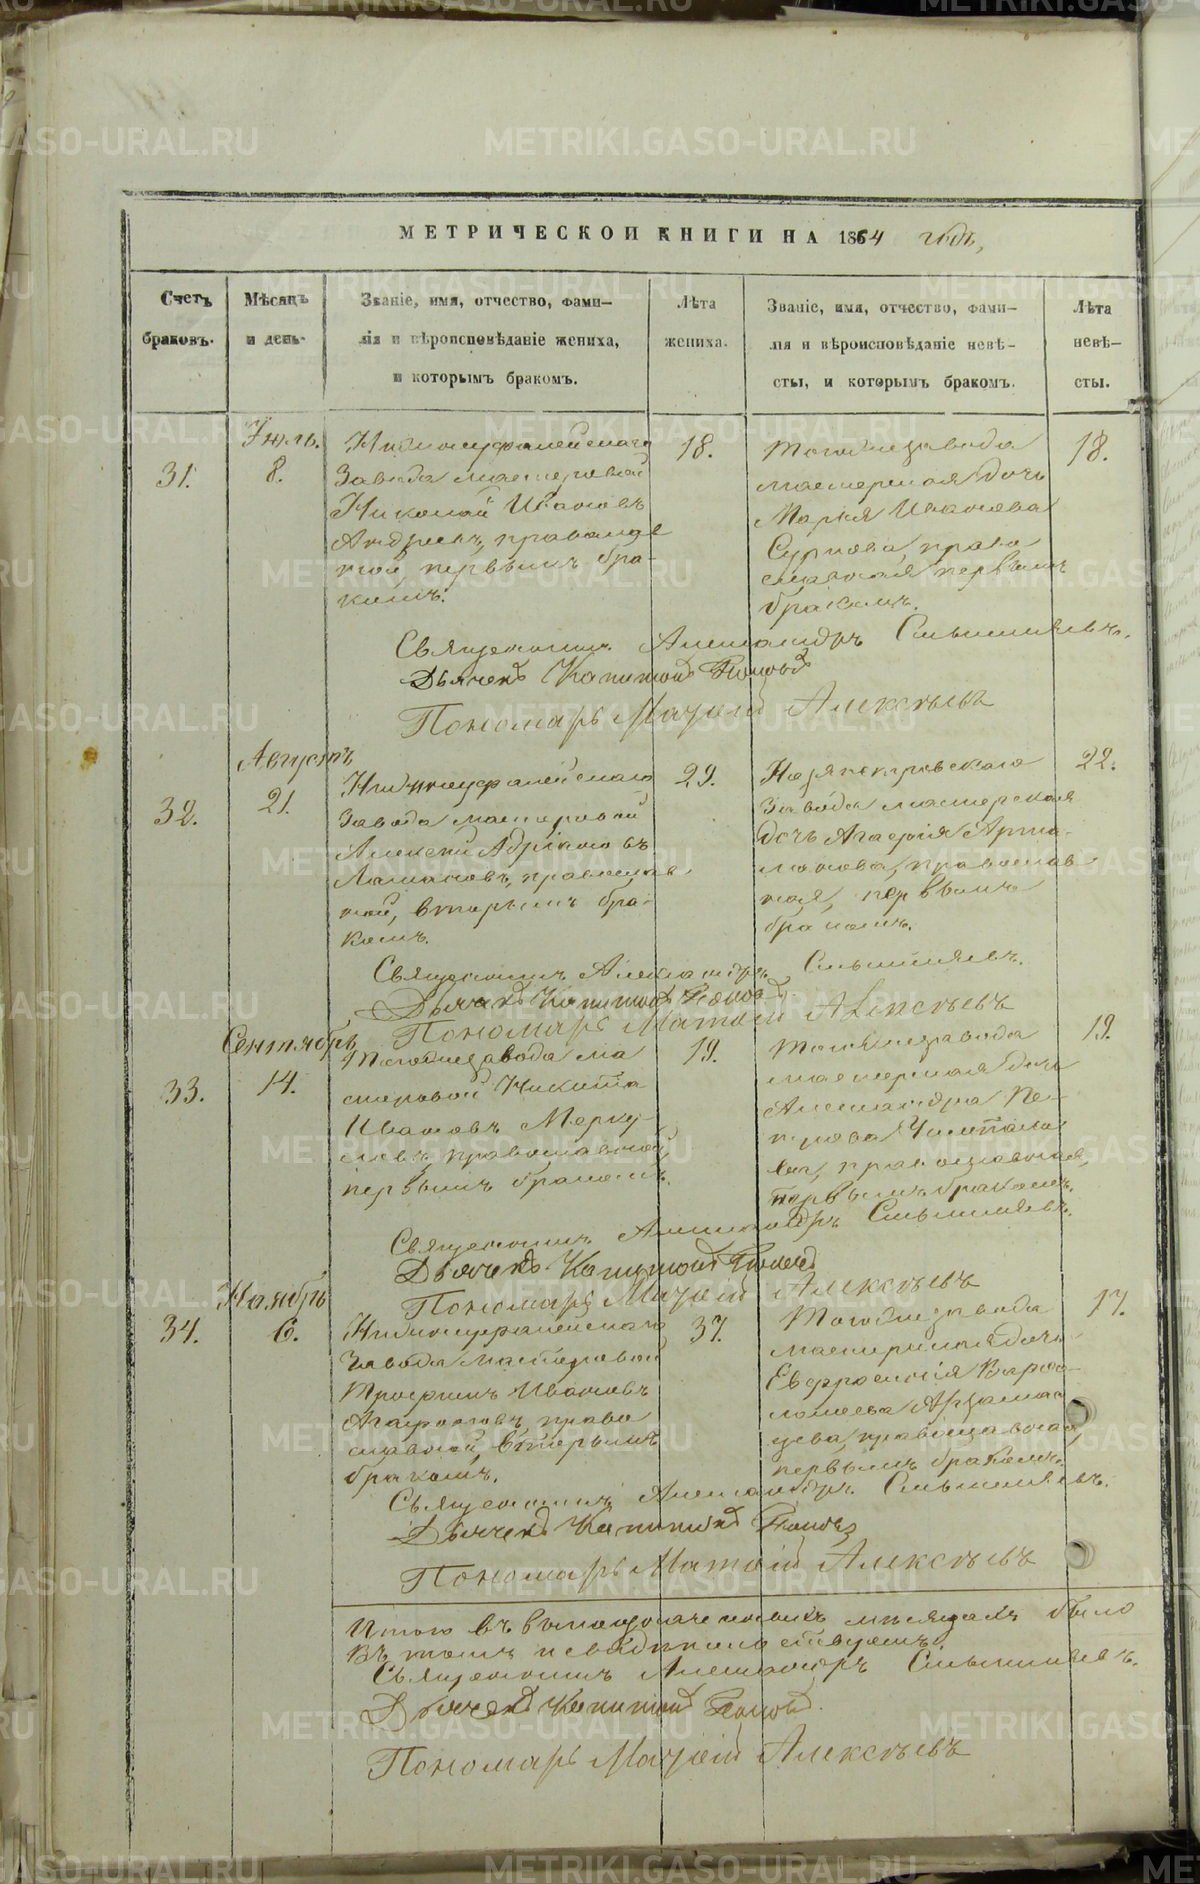 МЕТРИЧЕСКОЙ КНИГИ НА 1864 годъ,
Счетъ браковъ.
Мѣсяцъ и день.
Званіе, имя, отчество, фами-
лія и вѣроисповѣданіе жениха,
и которымъ бракомъ.
Лѣта жениха.
Званіе, имя, отчество, фами-
лія и вѣроисповѣданіе невѣ-
сты, и которымъ бракомъ.
Лѣта невѣ-
сты.
31.
Іюль.
8.
Нижноуфалейскаго
Завода мастеровой
Николай Ивановъ
православ
ной, первымъ бра-
комъ.
18.
Тогоже завода
мастерская дочь
Марія Иванова
право
славная первымъ
бракомъ.
18.
Священникъ Александръ
Дьячекъ Капитонъ Поповъ
Пономарь Матѳій Алексѣевъ
32.
Августъ
21.
Нижноуфалейскаго
Завода мастеровой
Алексѣй
православ
ной, вторымъ бра-
комъ.
29.
Нязепетровскаго
Завода мастерская
дочь Агапія Арта-
монова, православ
ная, первымъ
бракомъ.
22.
Священникъ Александръ
Дьячекъ Капитонъ Поповъ
Пономарь Матѳій Алексѣевъ
33.
Сентябрь
14.
Тогоже завода ма
стеровой Никита
Ивановъ Мерку
левъ, православной,
первымъ бракомъ.
19.
Тогоже завода
мастерская дочь
Александра Пе-
трова
православная,
первымъ бракомъ.
19.
Священникъ Александръ
Дьячекъ Капитонъ Поповъ
Пономарь Матѳій Алексѣевъ
34.
Ноябрь
6.
Нижноуфалейскаго
Завода мастеровой
Трофимъ Ивановъ
Агафоновъ, право
славной, вторымъ
бракомъ.
37.
Тогоже завода
мастерская дочь
Евфросинія Варѳо-
ломеева Арзамас
цева, православная,
первымъ бракомъ.
17.
Священникъ Александръ
Дьячекъ Капитонъ Поповъ
Пономарь Матѳій Алексѣевъ
Итого въ мѣсяцахъ было
Въ томъ и свидѣтельствуемъ:
Священникъ Александръ
Дьячекъ Капитонъ Поповъ
Пономарь Матѳій Алексѣевъ
METRIKI.GASO-URAL.RU